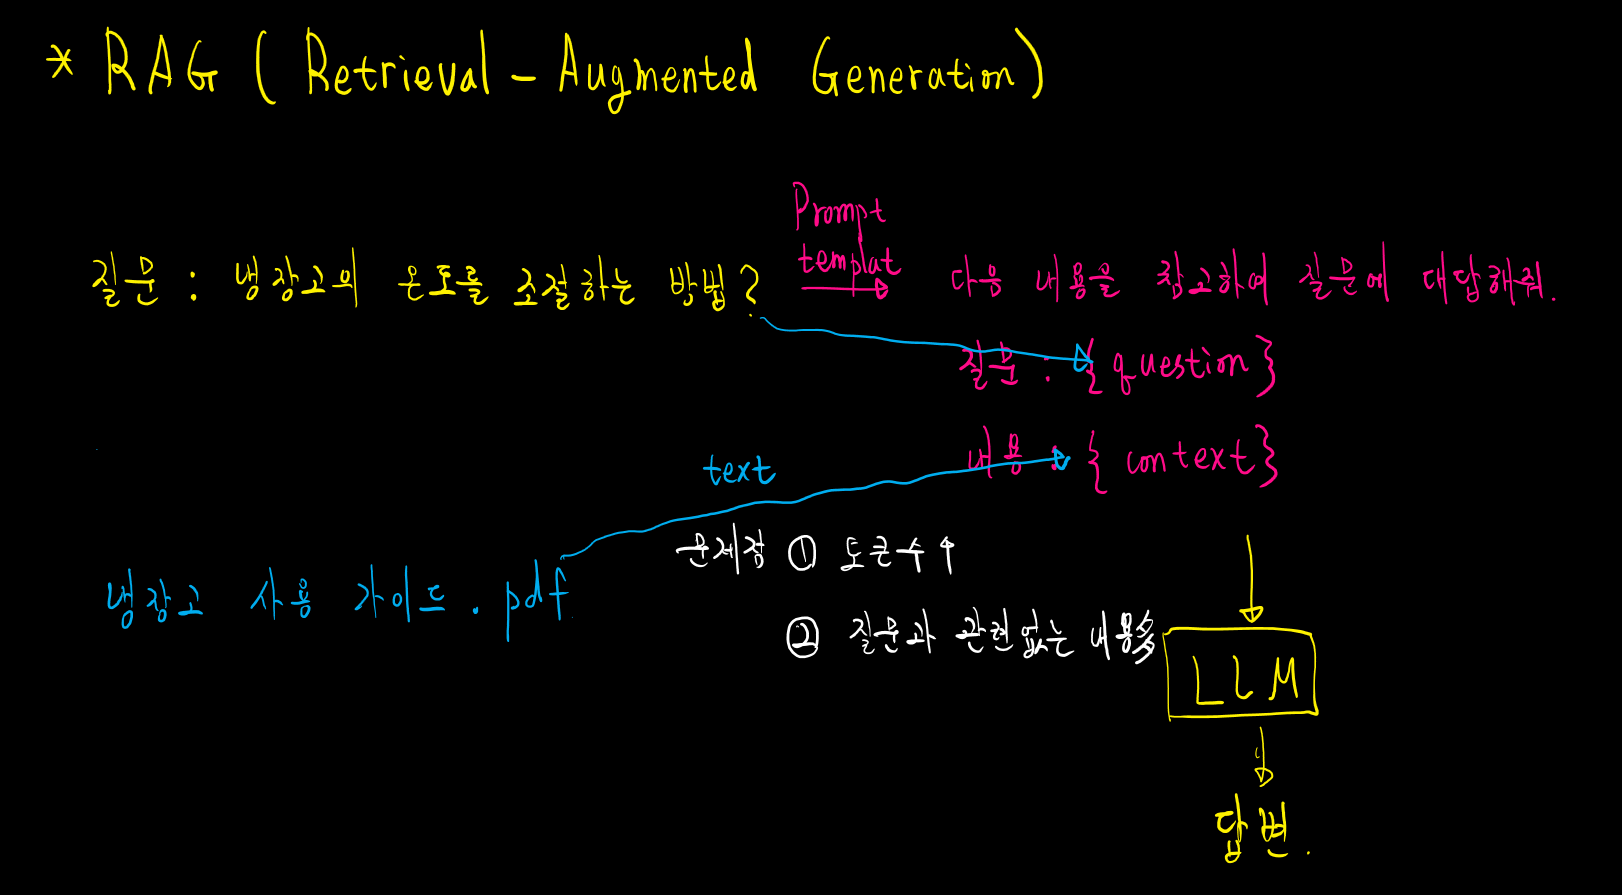 * RAG ( Retrieval - Augmented Generation )
Prompt
templat
질문 : 냉장고의 온도를 조절하는 방법?
다음 내용을 참고하여 질문에 대답해줘.
질문 : { question }
내용 : { context }
text
냉장고 사용 가이드 . pdf
문제점 ① 토큰수 ↑
② 질문과 관련없는 내용
LLM
답변.